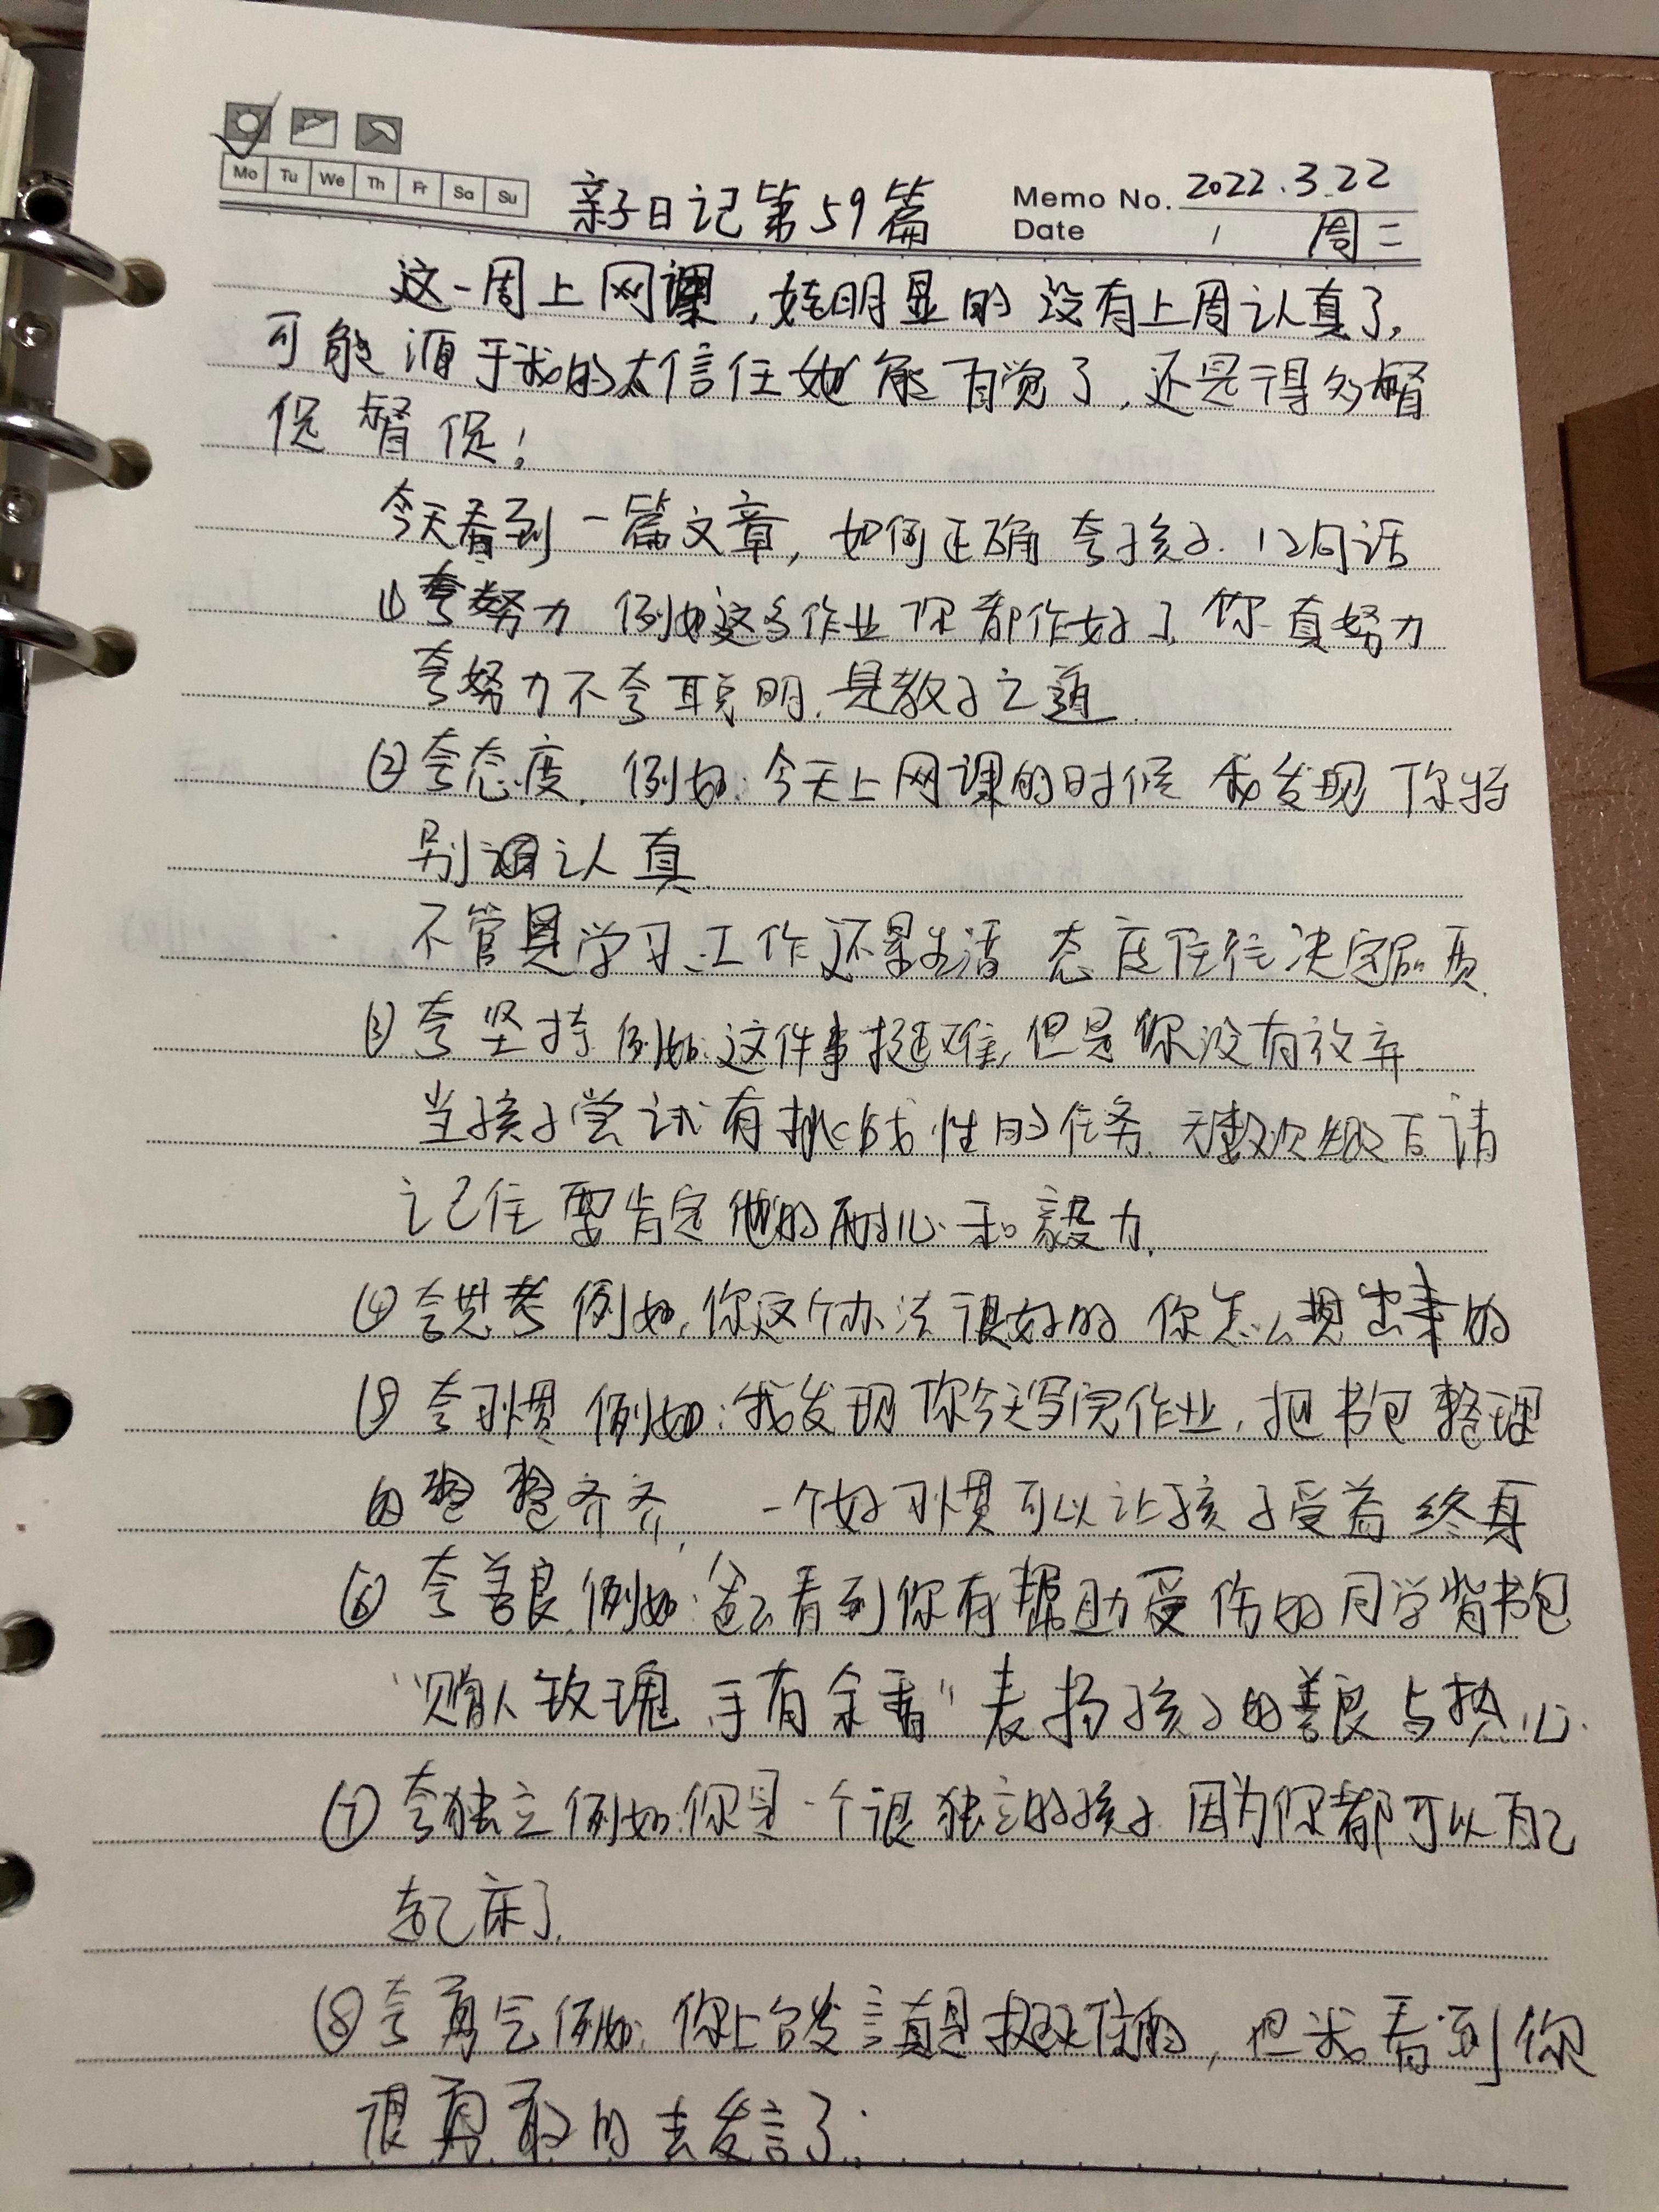 Mo Tu We Th Fr Sa Su
亲子日记第59篇
Memo No. 2022.3.22
Date / 周二
这一周上网课,娃明显的没有上周认真了,
可能源于我的太信任她能自觉了,还是得多督
促督促!
今天看到一篇文章,如何正确夸孩子.12句话
①夸努力 例如这多作业你都作好了,你真努力
夸努力不夸聪明.是教子之道.
②夸态度.例如:今天上网课的时候 我发现你特
别认真
不管是学习、工作还是生活 态度往往决定品质.
③夸坚持 例如:这件事挺难,但是你没有放弃.
当孩子尝试有挑战性的任务.无数次失败后请
记住要肯定他的耐心和毅力.
④夸思考 例如,你这个办法很好的 你怎么想出来的
⑤夸习惯 例如:我发现你今天写完作业,把书包整理
的整整齐齐, 一个好习惯可以让孩子受益终身
⑥夸善良.例如:爸爸看到你有帮助受伤的同学背书包
"赠人玫瑰 手有余香"表扬孩子的善良与热心.
⑦夸独立 例如:你是一个很独立的孩子 因为你都可以自己
起床了.
⑧夸勇气 例如:你上台发言真是挺的,但我看到你
很勇敢的去发言了;